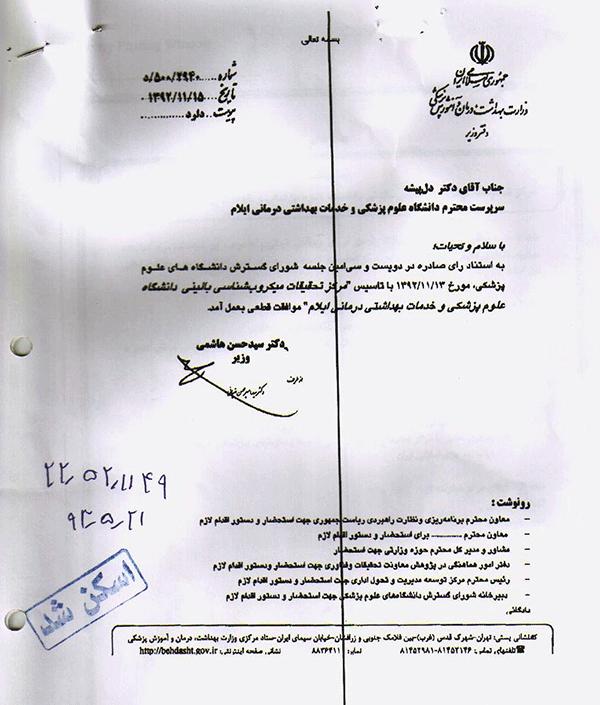 بسمه تعالی
جمهوری اسلامی ایران
وزارت بهداشت، درمان و آموزش پزشکی
دفتر وزیر
شماره.....۵/۵۰۰/۲۹۴۰
تاریخ.....۱۳۹۲/۱۱/۱۵
پیوست.... دارد
جناب آقای دکتر دل‌پیشه
سرپرست محترم دانشگاه علوم پزشکی و خدمات بهداشتی درمانی ایلام
با سلام و تحیات؛
به استناد رای صادره در دویست و سی‌امین جلسه شورای گسترش دانشگاه های علوم
پزشکی، مورخ ۱۳۹۲/۱۱/۱۳ با تاسیس "مرکز تحقیقات میکروب‌شناسی بالینی دانشگاه
علوم پزشکی و خدمات بهداشتی درمانی ایلام" موافقت قطعی بعمل آمد.
دکتر سیدحسن هاشمی
وزیر
از طرف
۲۲,۵۲,۱۱۴۹
۹۳,۵,۲۱
اسکن شد
رونوشت :
- معاون محترم برنامه‌ریزی و نظارت راهبردی ریاست جمهوری جهت استحضار و دستور اقدام لازم
- معاون محترم ................ برای استحضار و دستور اقدام لازم
- مشاور و مدیر کل محترم حوزه وزارتی جهت استحضار
- دفتر امور هماهنگی در پژوهش معاونت تحقیقات وفناوری جهت استحضار ودستور اقدام لازم
- رئیس محترم مرکز توسعه مدیریت و تحول اداری جهت استحضار و دستور اقدام لازم
- دبیرخانه شورای گسترش دانشگاه‌های علوم پزشکی جهت استحضار و دستور اقدام لازم
بایگانی
نشانی پستی: تهران-شهرک قدس (غرب)-بین فلامک جنوبی و زرافشان-خیابان سیمای ایران-ستاد مرکزی وزارت بهداشت، درمان و آموزش پزشکی
تلفنهای تماس: ۸۱۴۵۲۱۴۶-۸۱۴۵۲۹۸۱ نمابر: ۸۸۳۶۴۱۱ نشانی صفحه اینترنتی: http://behdasht.gov.ir